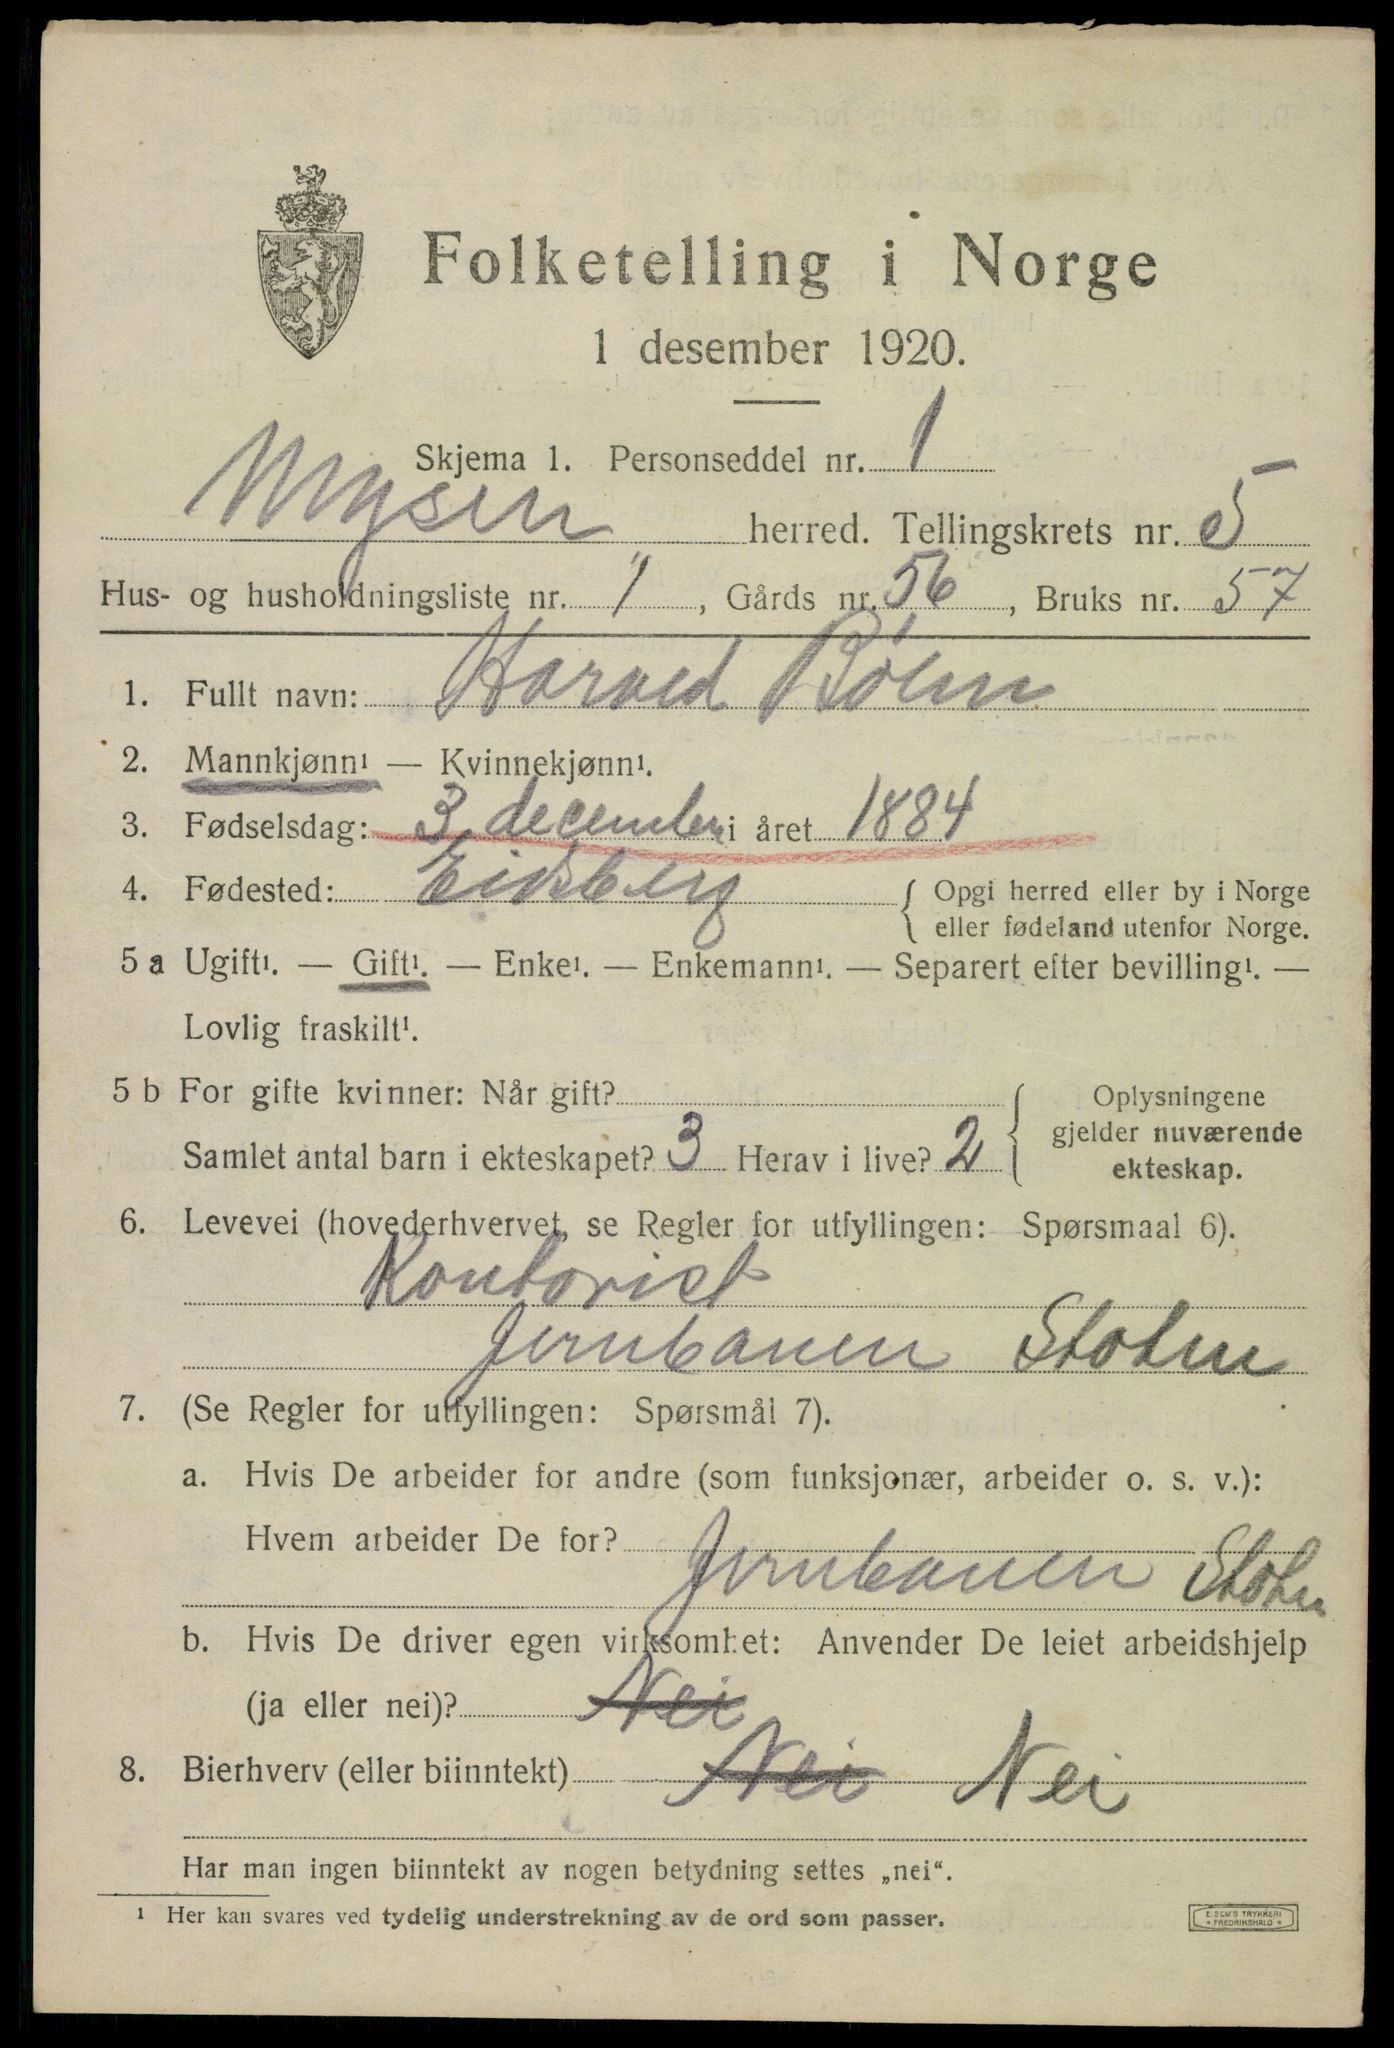 Folketelling i Norge
1 desember 1920.
Skjema 1. Personseddel nr. 1
Mysen herred. Tellingskrets nr. 5
Hus- og husholdningsliste nr. 1, Gårds nr. 56, Bruks nr. 57
1. Fullt navn: Harald Bøhn
2. Mannkjønn¹ — Kvinnekjønn¹.
3. Fødselsdag: 3 december i året 1884
4. Fødested: Eidsberg { Opgi herred eller by i Norge
eller fødeland utenfor Norge.
5 a Ugift¹. — Gift¹. — Enke¹. — Enkemann¹. — Separert efter bevilling¹. —
Lovlig fraskilt¹.
5 b For gifte kvinner: Når gift?
Samlet antal barn i ekteskapet? 3 Herav i live? 2
Oplysningene
gjelder nuværende
ekteskap.
6. Levevei (hovederhvervet, se Regler for utfyllingen: Spørsmaal 6).
Kontorist
Jernbanen Staten
7. (Se Regler for utfyllingen: Spørsmål 7).
a. Hvis De arbeider for andre (som funksjonær, arbeider o. s. v.):
Hvem arbeider De for?
Jernbanen Staten
b. Hvis De driver egen virksomhet: Anvender De leiet arbeidshjelp
(ja eller nei)? Nei
8. Bierhverv (eller biinntekt) Nei Nei
Har man ingen biinntekt av nogen betydning settes „nei“.
¹ Her kan svares ved tydelig understrekning av de ord som passer.
TRYKKERI
FREDRIKSHALD